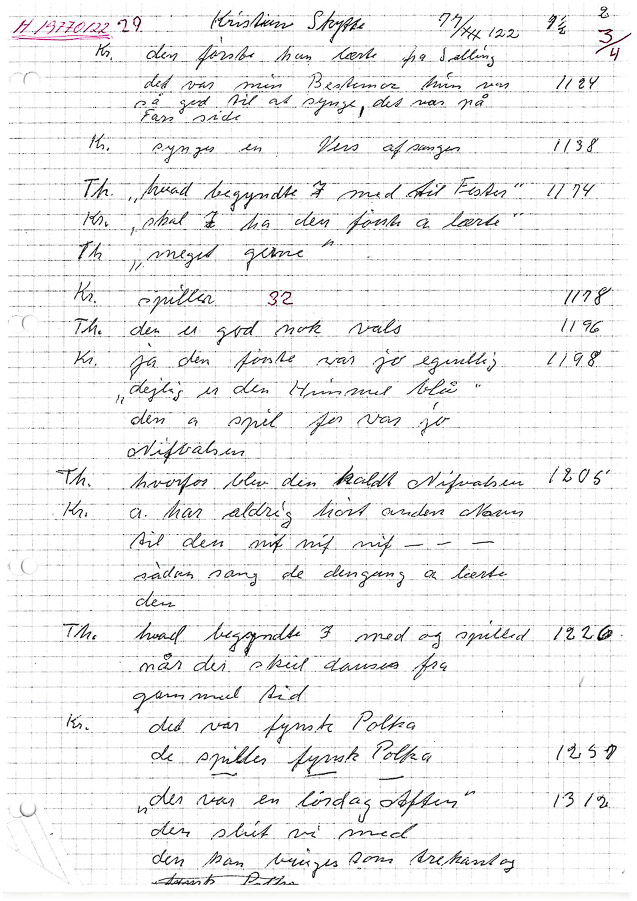 H 13770122 29 Kristian Skytte 77/XX 122 9½ 2
3/4
Kr. den første han lærte fra Salling
det var min Bestemor hun var 1124
så god til at synge, det var på
Fars side
Kr. synges en Vers af sangen 1138
Th. „hvad begyndte I med til Fester" 1174
Kr. „skal I ha den første a lærte"
Th „meget gerne"
Kr. spiller 32 1178
Th. den er god nok vals 1196
Kr. ja den første var jo egentlig 1198
„dejlig er den Himmel blå"
den a spil for var jo
Nifvalsen
Th. hvorfor blev den kaldt Nifvalsen 1205
Kr. a. har aldrig hørt anden Navn
til den nif nif nif – – –
sådan sang de dengang a lærte
den
Th. hvad begyndte I med og spilled 1226.
når der skul danses fra
gammel tid
Kr. det var fynsk Polka
de spiller fynsk Polka 1257
„der var en lørdag Aften" 1312
den slut vi med
den kan bruges som trekant og
fynsk Polka